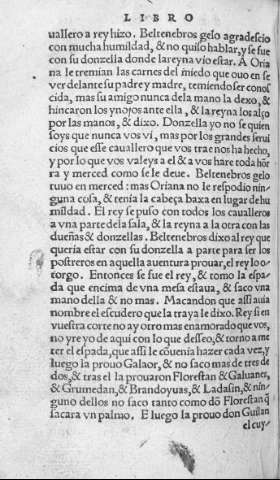 LIBRO
uallero a rey hizo. Beltenebros gelo agradescio
con mucha humildad, & no quiso hablar, y se fue
con su donzella donde la reyna vio estar. A Oria
na le tremian las carnes del miedo que ouo en se
ver delante su padre y madre, temiendo ser conos
cida, mas su amigo nunca dela mano la dexo, &
hincaron los ynojos ante ella, & la reyna los alço
por las manos, & dixo. Donzella yo no se quien
soys que nunca vos vi, mas por los grandes serui
cios que esse cauallero que vos trae nos ha hecho,
y por lo que vos valeys a el & a vos hare toda hõ
ra y merced como se le deue. Beltenebros gelo
tuuo en merced: mas Oriana no le respõdio nin
guna cosa, & tenía la cabeça baxa en lugar de hu
mildad. El rey se puso con todos los caualleros
a vna parte dela sala, & la reyna a la otra con las
dueñas & donzellas. Beltenebros dixo al rey que
queria estar con su donzella a parte para ser los
postreros en aquella auentura prouar, el rey lo o
torgo. Entonces se fue el rey, & tomo la espa
da que encima de vna mesa estaua, & saco vna
mano della & no mas. Macandon que assi auia
nombre el escudero que la traya le dixo. Rey si en
vuestra corte no ay otro mas enamorado que vos,
no yre yo de aqui con lo que desseo, & torno a me
ter el espada, que assi le cõuenia hazer cada vez, y
luego la prouo Galaor, & no saco mas de tres de
dos, & tras el la prouaron Florestan & Galuanes,
& Grumedan, & Brandoyuas, & Ladasin, & nin
guno dellos no saco tanto como dõ Florestan q̃
sacara vn palmo. E luego la prouo don Guilan
el cuy-